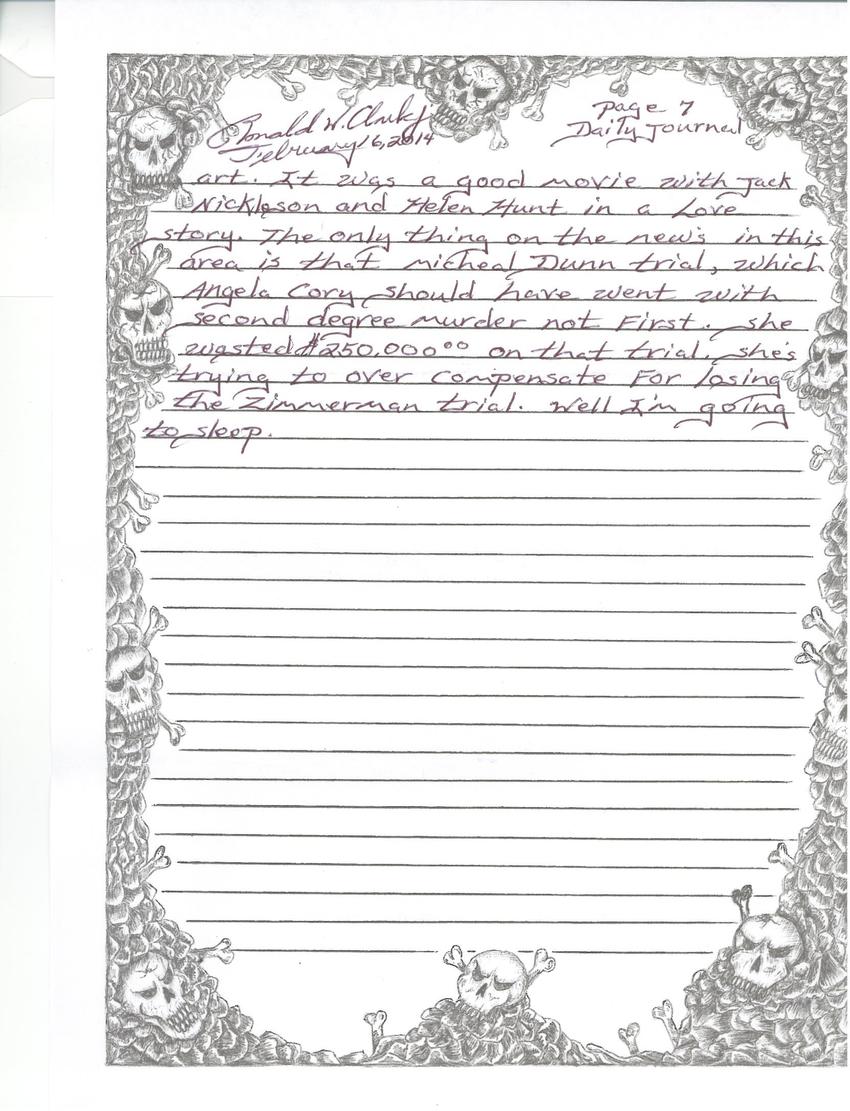 Ronald W. Clark Jr
February 16, 2014
Page 7
Daily Journal
art. It was a good movie with Jack
Nickleson and Helen Hunt in a Love
story. The only thing on the news in this
area is that Micheal Dunn trial, which
Angela Cory should have went with
second degree murder not First. She
wasted $250,000°° on that trial. She's
trying to over compensate For losing
the Zimmerman trial. Well I'm going
to sleep.